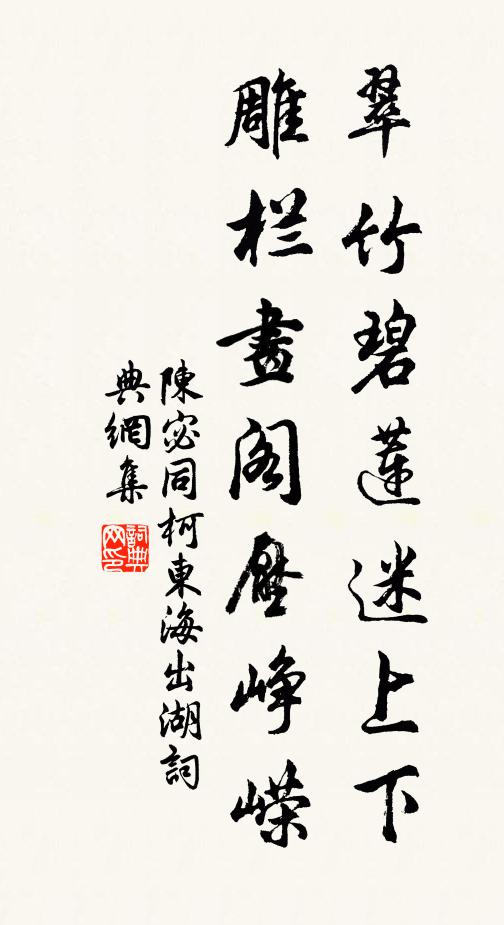 翠竹碧蓮迷上下
雕栏畫阁壓峥嵘
陳宓同柯東海出湖詞
典網集
詞典网印